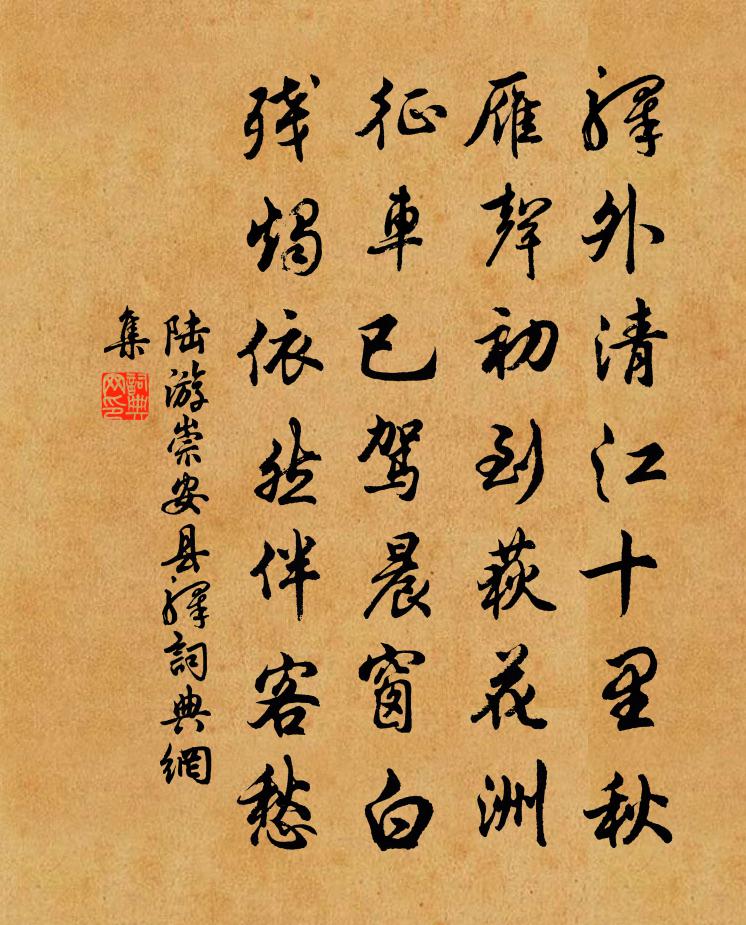 驛外清江十里秋
雁聲初到荻花洲
征車已駕晨窗白
残燭依然伴客愁
陆游崇安县驛詞典網
集
詞典网印